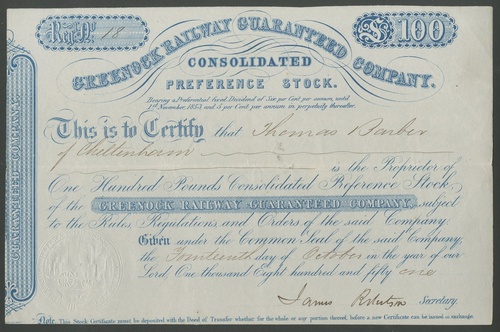 Reg. No. 18
GREENOCK RAILWAY GUARANTEED COMPANY.
£ 100
CONSOLIDATED
PREFERENCE STOCK.
Bearing a Preferential fixed Dividend of Six per Cent per annum, until
1st November, 1853 and 5 per Cent per annum in perpetuity thereafter.
This is to Certify that Thomas Barber
of Cheltenham
is the Proprietor of
One Hundred Pounds Consolidated Preference Stock,
of the GREENOCK RAILWAY GUARANTEED COMPANY, subject
to the Rules, Regulations, and Orders of the said Company.
Given under the Common Seal of the said Company,
the Fourteenth day of October in the year of our
Lord, One thousand Eight hundred and fifty one
James Robertson Secretary.
Note. This Stock Certificate must be deposited with the Deed of Transfer whether for the whole or any portion thereof, before a new Certificate can be issued in exchange.
GREENOCK RAILWAY GUARANTEED COMPANY